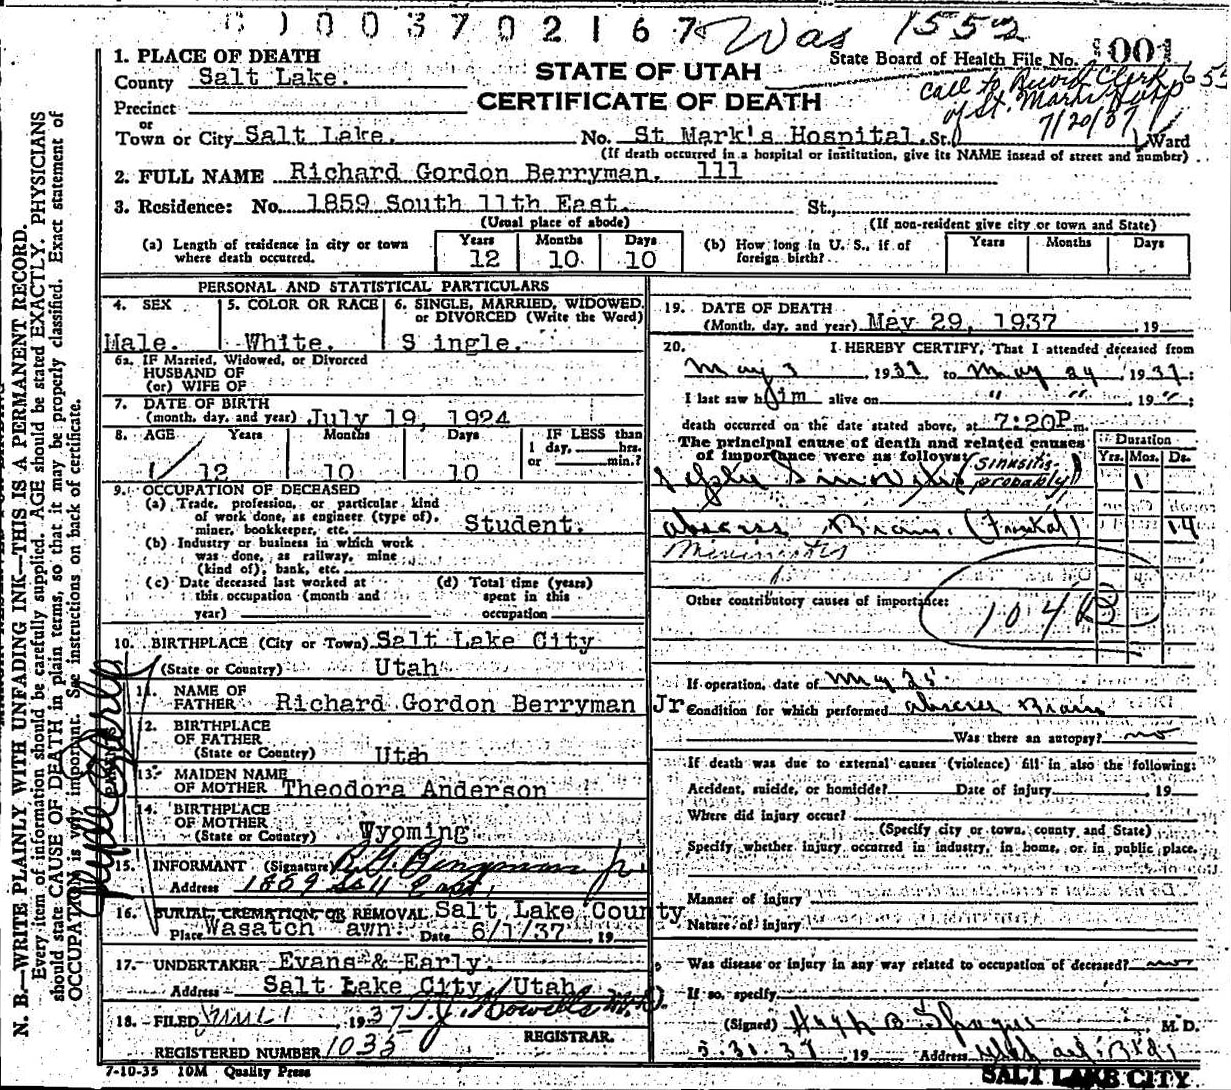 0 0 3 7 0 2 1 6 7 Was 1552
State Board of Health File No. 001
1. PLACE OF DEATH
County Salt Lake.
STATE OF UTAH
CERTIFICATE OF DEATH
call to Record Clerk
of St. Marks Hosp
7/20/37
Precinct
or
Town or City Salt Lake. No. St Mark's Hospital. St. Ward
(If death occurred in a hospital or institution, give its NAME instead of street and number)
2. FULL NAME Richard Gordon Berryman. 111
3. Residence: No. 1859 South 11th East. St.,
(Usual place of abode) (If non-resident give city or town and State)
(a) Length of residence in city or town where death occurred. Years 12 Months 10 Days 10
(b) How long in U. S., if of foreign birth? Years Months Days
PERSONAL AND STATISTICAL PARTICULARS
4. SEX 5. COLOR OR RACE 6. SINGLE, MARRIED, WIDOWED, or DIVORCED (Write the Word)
Male. White. Single.
6a. IF Married, Widowed, or Divorced
HUSBAND OF
(or) WIFE OF
7. DATE OF BIRTH
(month, day, and year) July 19, 1924
8. AGE Years Months Days IF LESS than
1 day, hrs.
or min.?
12 10 10
9. OCCUPATION OF DECEASED
(a) Trade, profession, or particular kind
of work done, as engineer (type of),
miner, bookkeeper, etc. Student.
(b) Industry or business in which work
was done, as railway, mine
(kind of), bank, etc.
(c) Date deceased last worked at
this occupation (month and
year)
(d) Total time (years)
spent in this
occupation
10. BIRTHPLACE (City or Town) Salt Lake City
(State or Country) Utah
11. NAME OF
FATHER Richard Gordon Berryman Jr
12. BIRTHPLACE
OF FATHER
(State or Country) Utah
13. MAIDEN NAME
OF MOTHER Theodora Anderson
14. BIRTHPLACE
OF MOTHER
(State or Country) Wyoming
15. INFORMANT (Signature) R. G. Berryman Jr.
Address 1859 So 11 East.
16. BURIAL, CREMATION, OR REMOVAL Salt Lake County
Place Wasatch awn. Date 6/1/37 19
17. UNDERTAKER Evans & Early.
Address Salt Lake City, Utah
18. FILED June 1 1937 T. J. Howells M.D.
REGISTRAR.
REGISTERED NUMBER 1035
7-10-35 10M Quality Press
19. DATE OF DEATH
(Month, day, and year) May 29, 1937 , 19
20. I HEREBY CERTIFY, That I attended deceased from
May 3 1937 to May 29 1937;
I last saw him alive on " " 19 ";
death occurred on the date stated above, at 7:20P m.
The principal cause of death and related causes
of importance were as follows:
Duration
Yrs. Mos. Ds.
(Sinusitis probably) 1
abscess Brain. (Frontal) 14
Other contributory causes of importance:
104
If operation, date of May 25
Condition for which performed abscess Brain
Was there an autopsy? no
If death was due to external causes (violence) fill in also the following:
Accident, suicide, or homicide? Date of injury 19
Where did injury occur?
(Specify city or town, county and State)
Specify whether injury occurred in industry, in home, or in public place.
Manner of injury
Nature of injury
Was disease or injury in any way related to occupation of deceased? no
If so, specify
(Signed) Hugh B Sprague M. D.
5-31-37, 19 Address
SALT LAKE CITY
N. B.—WRITE PLAINLY WITH UNFADING INK—THIS IS A PERMANENT RECORD.
Every item of information should be carefully supplied. AGE should be stated EXACTLY. PHYSICIANS
should state CAUSE OF DEATH in plain terms, so that it may be properly classified. Exact statement of
OCCUPATION is very important. See instructions on back of certificate.